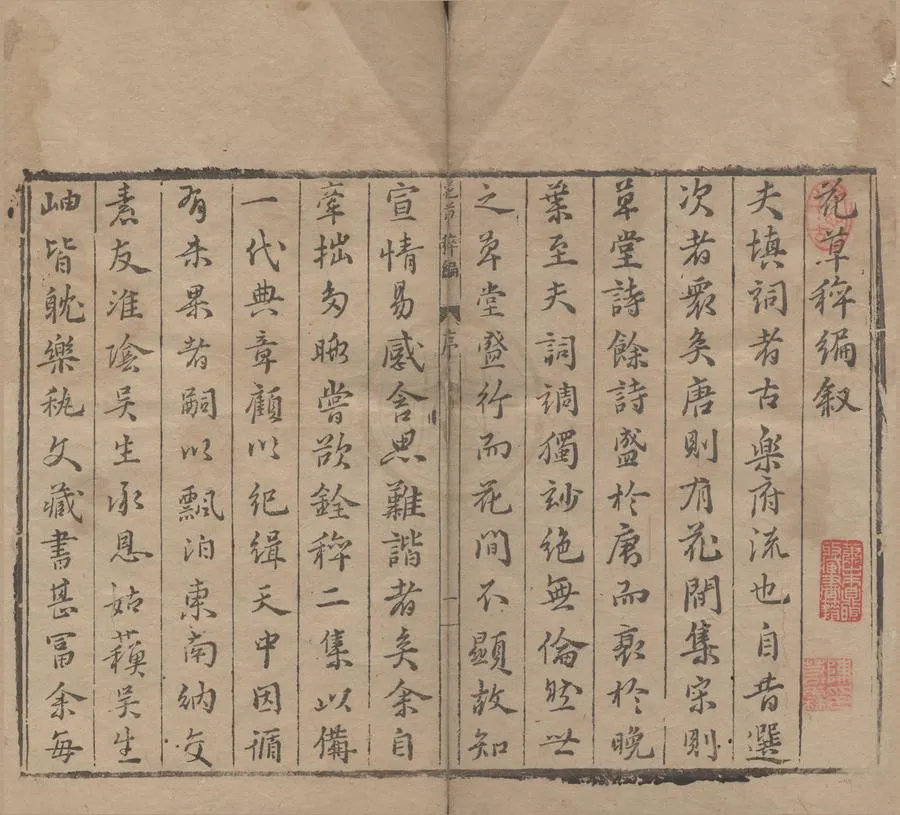 花草稡編叙
夫填詞者古樂府流也自昔選
次者衆矣唐則有花間集宋則
草堂詩餘詩盛於唐而衰於晚
葉至夫詞調獨妙絶無倫然世
之草堂盛行而花間不顯故知
花草稡編 序 一
宣情易感含思難諧者矣余自
牽拙多暇嘗欲銓稡二集以備
一代典章顧以紀緝天中因循
有未果者嗣以飄泊東南納交
素友淮陰吳生承恩姑蘓吳生
岫皆躭樂秇文藏書甚冨余每